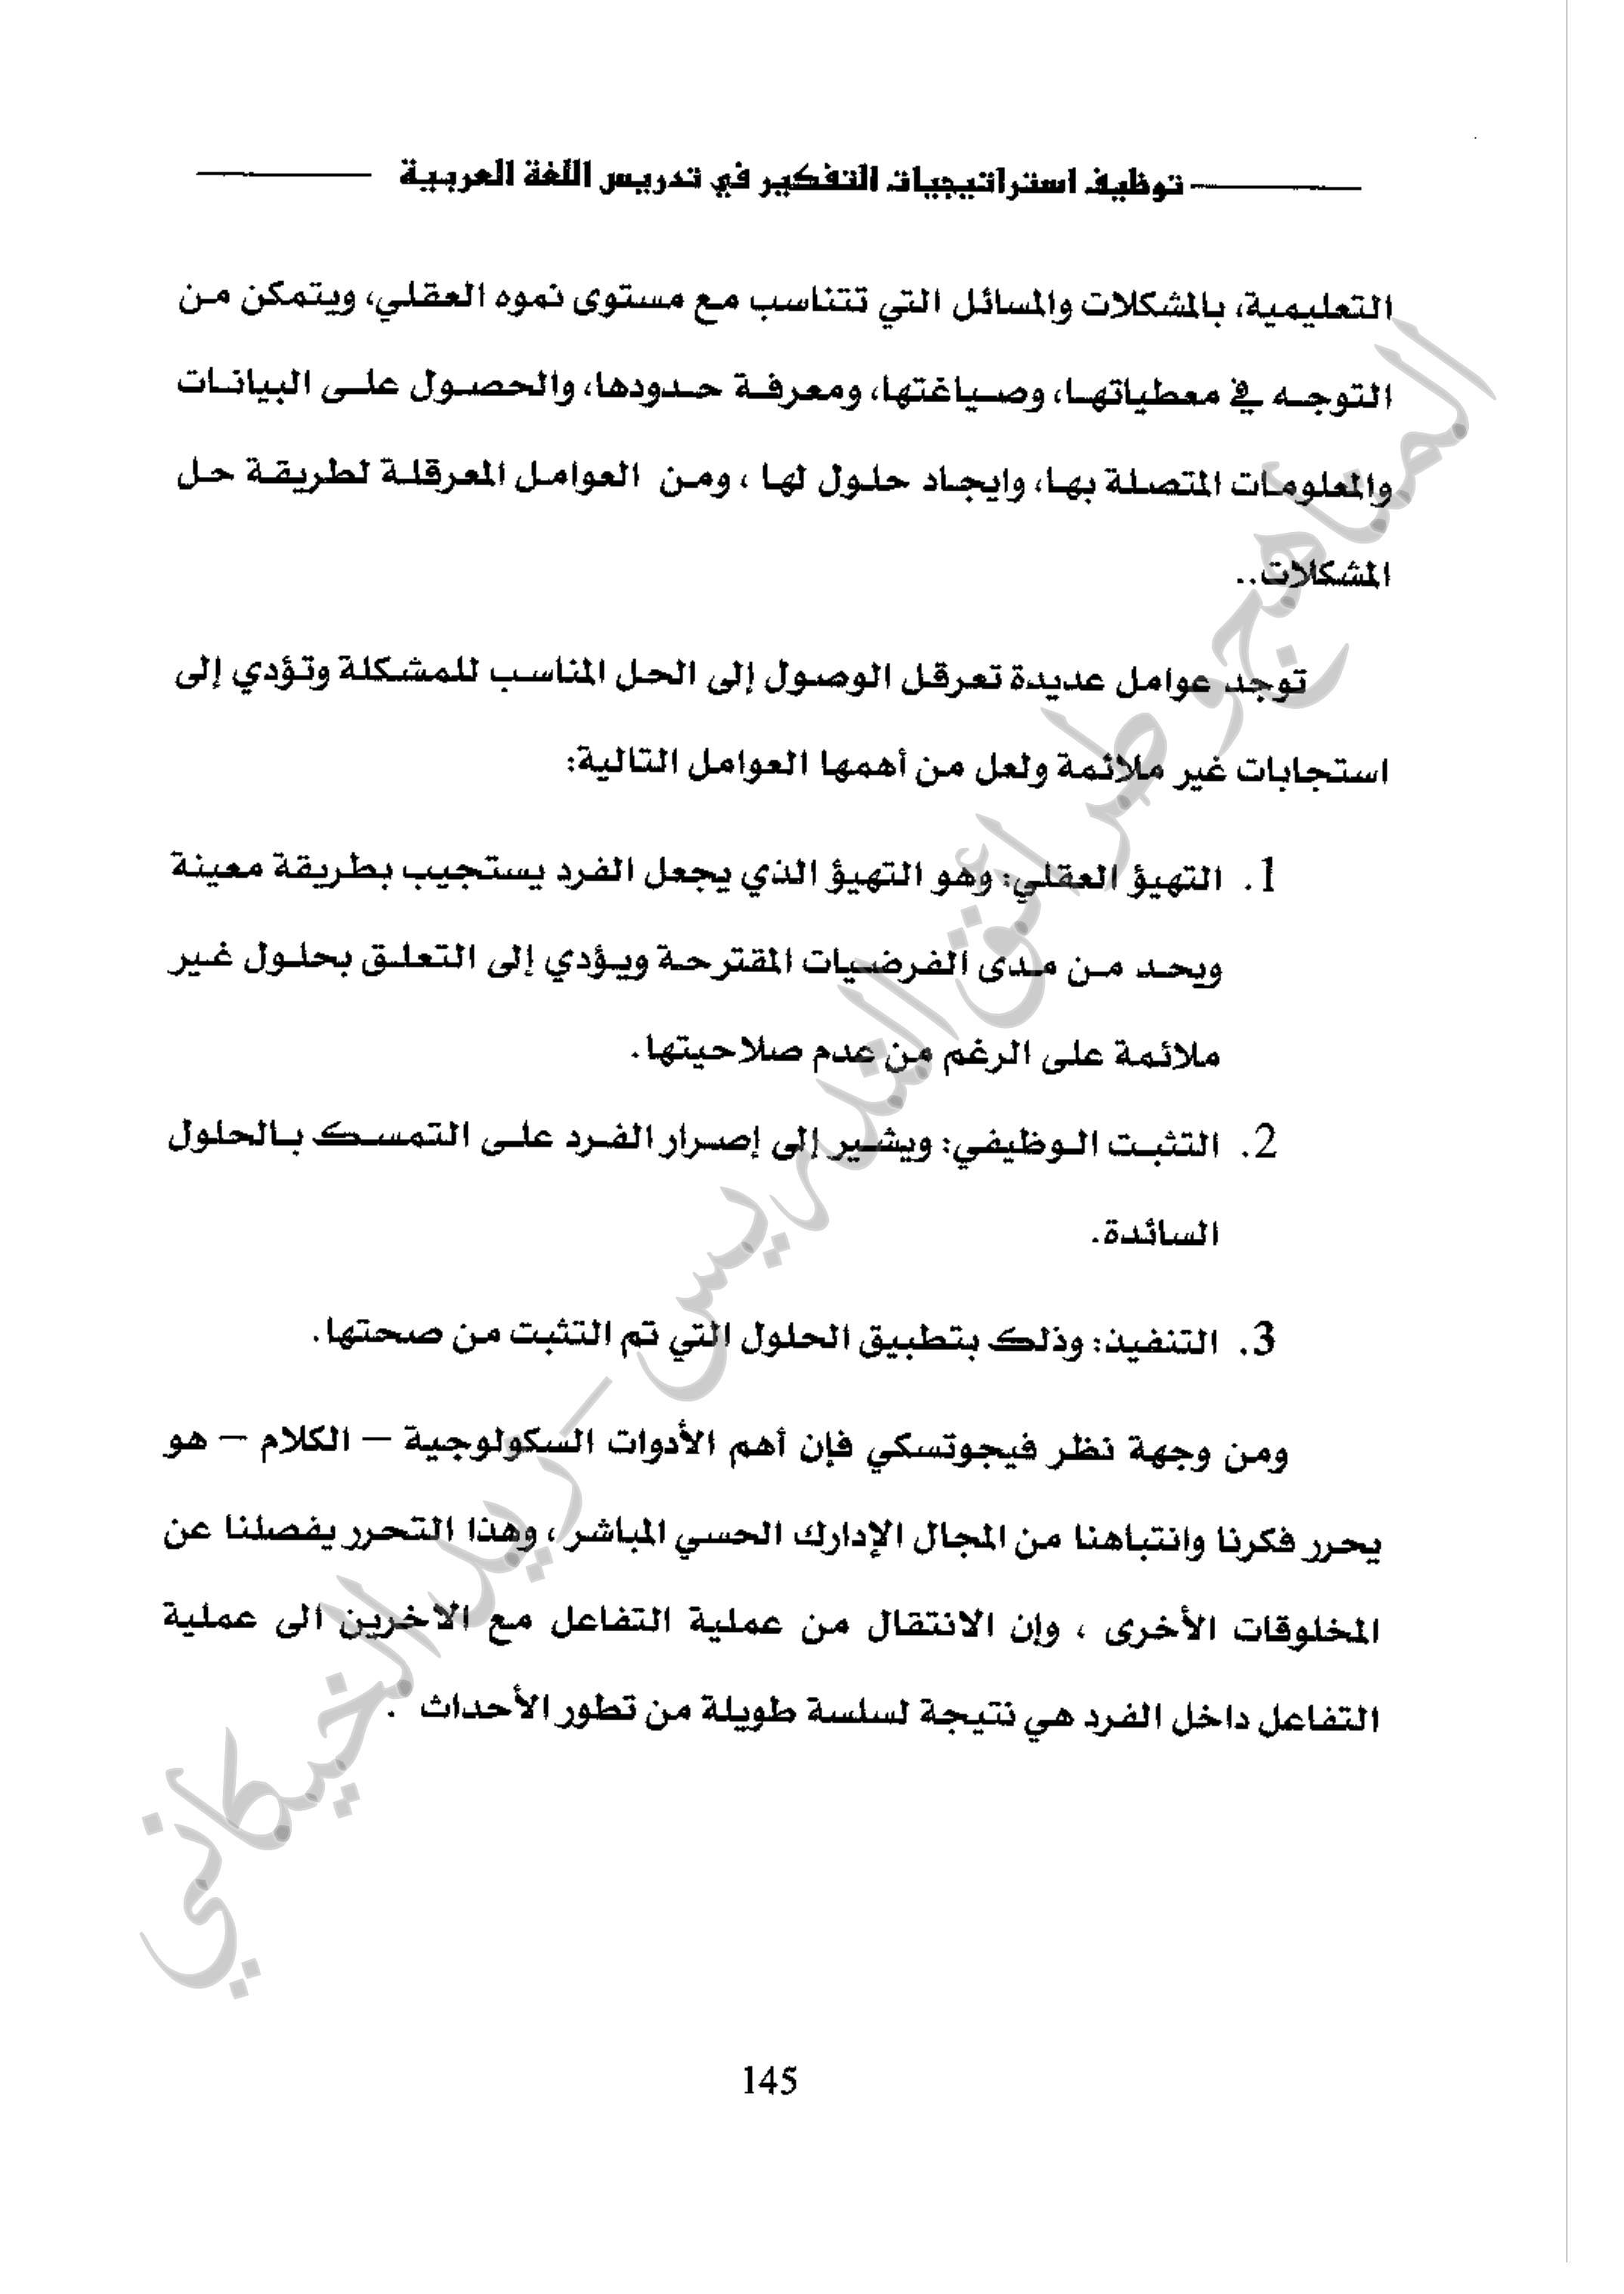 توظيف استراتيجيات التفكير في تدريس اللغة العربية
التعليمية، بالمشكلات والمسائل التي تتناسب مع مستوى نموه العقلي، ويتمكن من
التوجه في معطياتها، وصياغتها، ومعرفة حدودها، والحصول على البيانات
والمعلومات المتصلة بها، وايجاد حلول لها ، ومن العوامل المعرقلة لطريقة حل
المشكلات..
توجد عوامل عديدة تعرقل الوصول إلى الحل المناسب للمشكلة وتؤدي إلى
استجابات غير ملائمة ولعل من أهمها العوامل التالية:
1. التهيؤ العقلي: وهو التهيؤ الذي يجعل الفرد يستجيب بطريقة معينة
ويحد من مدى الفرضيات المقترحة ويؤدي إلى التعلق بحلول غير
ملائمة على الرغم من عدم صلاحيتها.
2. التثبت الوظيفي: ويشير إلى إصرار الفرد على التمسك بالحلول
السائدة.
3. التنفيذ: وذلك بتطبيق الحلول التي تم التثبت من صحتها.
ومن وجهة نظر فيجوتسكي فإن أهم الأدوات السكولوجية – الكلام – هو
يحرر فكرنا وانتباهنا من المجال الإدارك الحسي المباشر ، وهذا التحرر يفصلنا عن
المخلوقات الأخرى ، وإن الانتقال من عملية التفاعل مع الاخرين الى عملية
التفاعل داخل الفرد هي نتيجة لسلسة طويلة من تطور الأحداث .
المناهج وطرائق التدريس – زيد الخيكاني
145